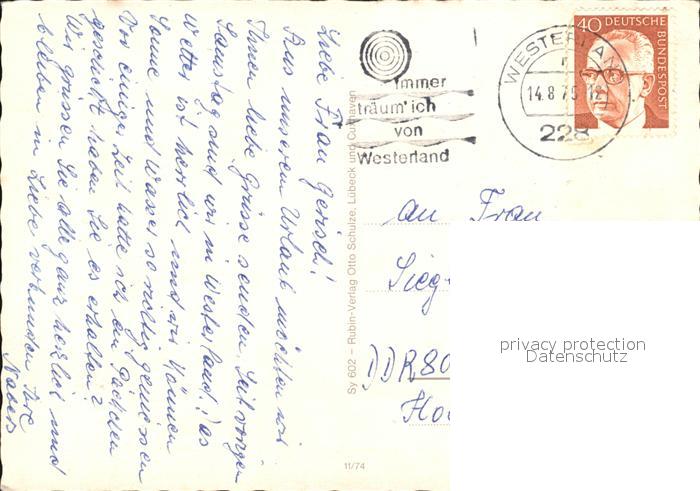 Liebe Frau Gerisch!
Aus unserem Urlaub möchten wir
Ihnen liebe Grüsse senden. Seit vorigen
Samstag sind wir in Westerland. Das
Wetter ist herrlich und wir können
Sonne und Wasser so richtig geniessen
Vor einiger Zeit hatte ich ein Päckchen
geschickt haben Sie es erhalten?
Wir grüssen Sie alle ganz herzlich und
bleiben in Liebe verbunden Ihre
Sy 602 – Rubin-Verlag Otto Schulze, Lübeck und Cuxhaven
11/74
immer
träum' ich
von
Westerland
WESTERLAND
14.8.75-12
228
40 DEUTSCHE
BUNDESPOST
An Frau
Sieg
DDR 80
Ho
privacy protection
Datenschutz